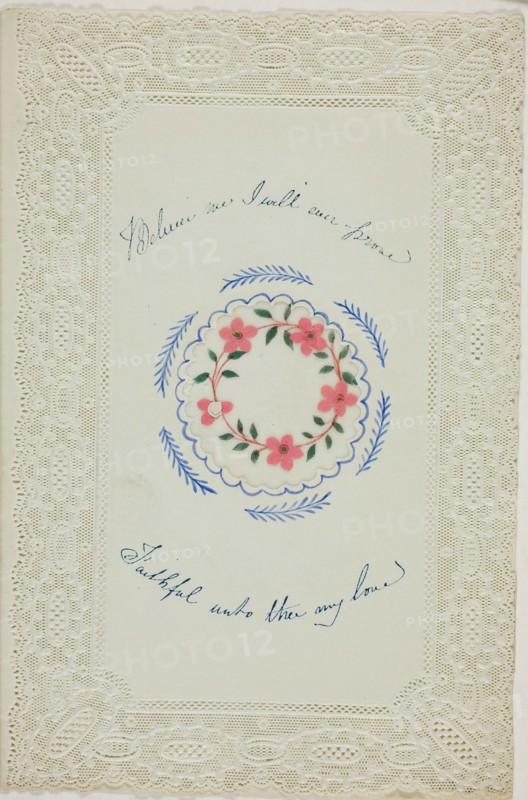 Believe me I will ever prove
Faithful unto thee my love
PHOTO12